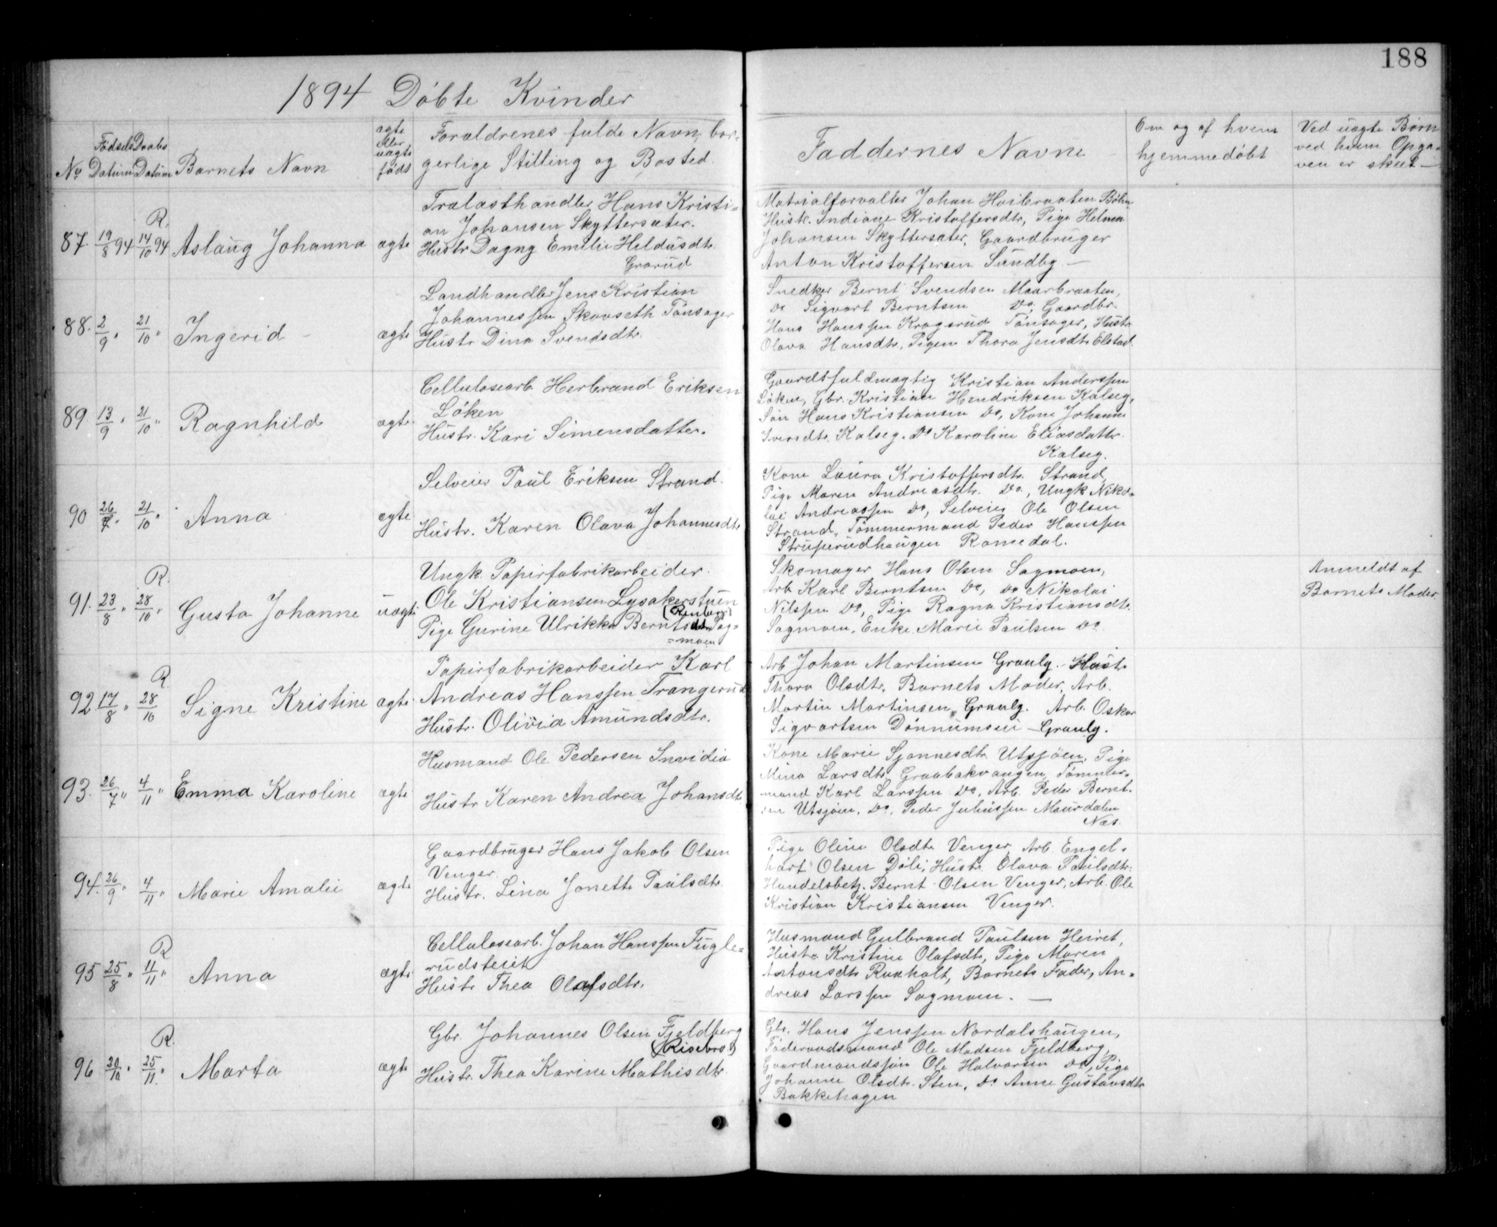 188
1894 Døbte Kvinder
No
Fødsels
Datum
Daabs
Datum
Barnets Navn
ægte
eller
uægte
født
Forældrenes fulde Navn, bor-
gerlige Stilling og Bosted.
Faddernes Navne
Om og af hvem
hjemmedøbt
Ved uægte Børn
ved hvem Opga-
ven er skeet —
R.
87 19/8 94 14/10 94 Aslaug Johanna ægte
Trælasthandler, Hans Kristi-
an Johansen Skyttersæter.
Hustr Dagny Emilie Hildusdtr.
Grorud
Matrialforvalter Johan Hvibraaten
Husk. Indiane Kristoffersdtr, Pige Helma
Johansen Skyttersæter, Gaardbruger
Anton Kristoffersen Sundby —
88. 2/9 " 21/10 " Ingerid — ægte
Landhandler Jens Kristian
Johannessen Skovseth Tønsager
Hustr Dina Svendsdtr.
Snedker Bernt Svendsen Maarbraaten,
do Sigvart Berntsen Do, Gaardbr.
Hans Hanssen Krogsrud Tønsager, Hustr
Olava Hansdtr, Pigen Thora Jensdtr Elstad
89 13/9 " 21/10 " Ragnhild ægte
Cellulosearb Herbrand Eriksen
Løken
Hustr. Kari Simensdatter.
Gaardsfuldmægtig Kristian Anderssen
Løken, Gbr. Kristian Hendriksen Kalseg,
Søn Hans Kristiansen Do, Kone Johanne
Svendtr Kalseg. Do Karoline Eliasdatter
Kalseg.
90 26/7 " 21/10 " Anna ægte
Selveier Paul Eriksen Strand.
Hustr. Karen Olava Johannesdtr
Kone Laura Kristoffersdtr Strand,
Pige Maren Andreasdtr. Do, Ungk Niko-
lai Andreassen Do, Selveier Ole Olsen
Strand, Tømmermand Peder Hanssen
Struperudhaugen Romedal.
R.
91. 23/8 " 28/10 " Gusta Johanne uægte
Ungk. Papirfabrikarbeider.
Ole Kristiansen Lysakerstuen
Pige Gurine Ulrikke Berntsdtr Sag-
moen
Skomager Hans Olsen Sagmoen,
Arb Karl Berntsen Do, Do Nikolai
Nilssen Do, Pige Ragna Kristiansdtr.
Sagmoen, Enke Marie Paulsen Do
Anmeldt af
Barnets Moder
R
92 17/8 " 28/10 " Signe Kristine ægte
Papirfabrikarbeider Karl
Andreas Hanssen Trangerud
Hustr. Olivia Amundsdtr.
Arb Johan Martinsen Graulg. Hustr.
Thora Olsdtr, Barnets Moder, Arb.
Martin Martinsen, Graulg. Arb. Oskar
Sigvartsen Dønnumseie Graulg.
93. 26/7 " 4/11 " Emma Karoline ægte
Husmand Ole Pedersen Invidia
Hustr Karen Andrea Johansdtr
Kone Marie Syonnesdtr Utsjøen, Pige
Mina Larsdtr Graabækvangen, Tømmer-
mand Karl Larssen Do, Arb. Peder Bernt-
sen Utsjøen, Do, Peder Juliussen Maurdalen
Næs.
94. 26/9 " 4/11 " Marie Amalie ægte
Gaardbruger Hans Jakob Olsen
Venger
Hustr. Lina Jonette Paulsdtr.
Pige Oline Olsdtr Venger, Arb Engel-
hart Olsen Døli, Hustr Olava Paulsdtr.
Handelsbetj. Bernt Olsen Venger, Arb. Ole
Kristian Kristiansen Venger.
R
95 25/8 " 11/11 " Anna ægte
Cellulosearb. Johan Hanssen Fugle-
rudsteiet
Hustr Thea Olafsdtr.
Husmand Gulbrand Paulsen Heiret,
Hustr Kristine Olafsdtr, Pige Maren
Antonsdtr Roxholt, Barnets Fader, An-
dreas Larssen Sagmoen. —
R.
96 20/10 " 25/11 " Marta ægte
Gbr. Johannes Olsen Fjeldberg
(Risebro)
Hustr. Thea Karine Mathisdtr
Gbr. Hans Jenssen Nordalshaugen,
Føderaadsmand Ole Madsen Fjeldberg,
Gaardmandssøn Ole Halvorsen Do, Pige
Johanne Olsdtr. Sten, Do Anne Gustavsdtr
Bakkehagen